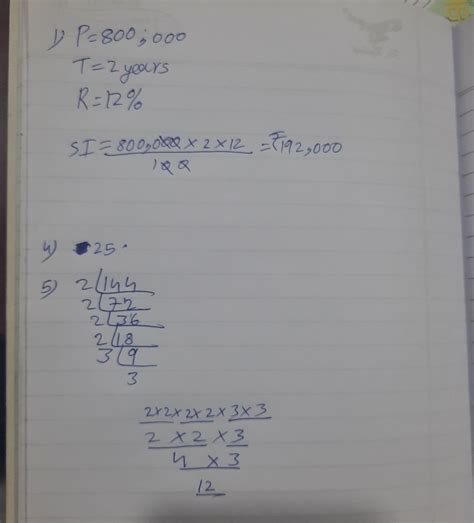 1) P=800,000
T=2 years
R=12%
SI=800,000 × 2 × 12 = ₹192,000
100
4) 25.
5) 2 144
2 72
2 36
2 18
3 9
3
2×2×2×2×3×3
2 × 2 × 3
4 × 3
12